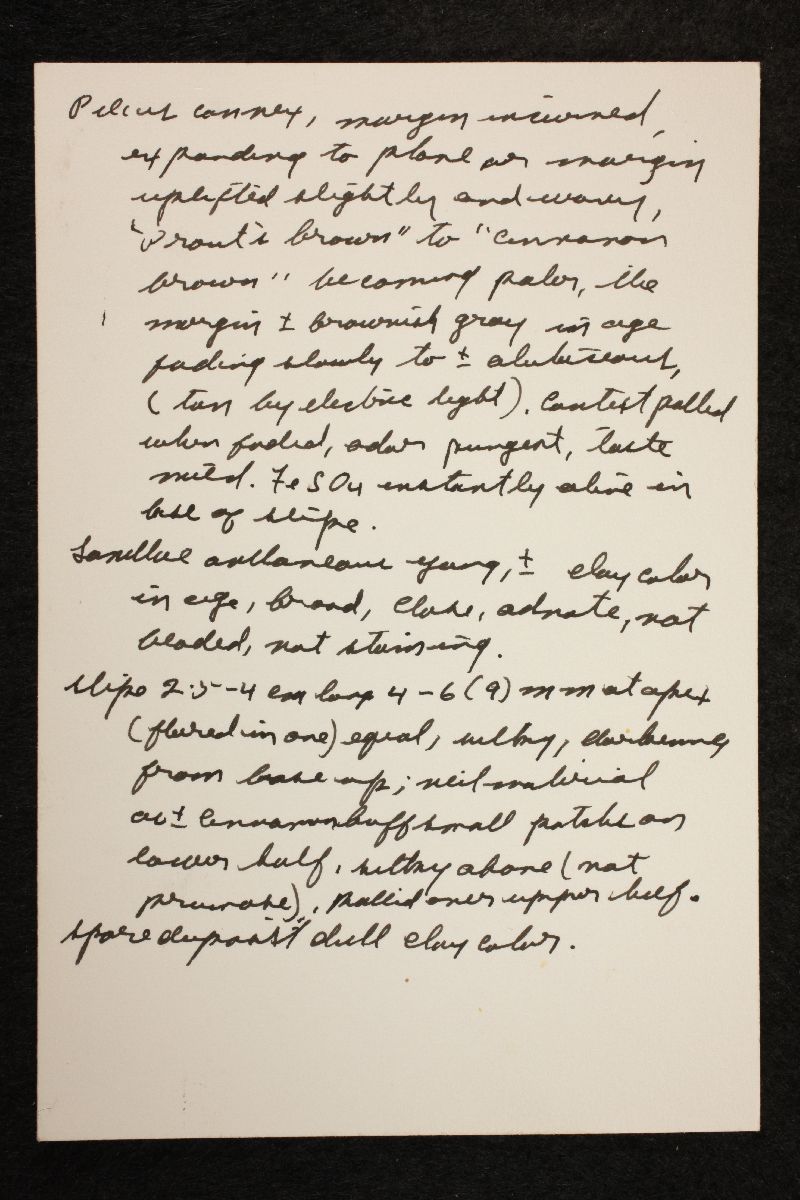 Pileus convex, margin incurved,
expanding to plane or margin
uplifted slightly and wavy,
"Prout's brown" to "cinnamon
brown" becoming paler, the
margin ± brownish gray in age
fading slowly to ± alutaceous,
(tan by electric light). Context pallid
when faded, odor pungent, taste
mild. FeSO4 instantly olive in
base of stipe.
Lamellae avellaneous young, ± clay color
in age, broad, close, adnate, not
beaded, not staining.
Stipe 2.5-4 cm long 4-6(9) mm at apex
(flared in one) equal, silky, darkening
from base up; veil material
as ± cinnamon buff small patches on
lower half, silky above (not
pruinose), pallid over upper half.
Spore deposit dull clay color.